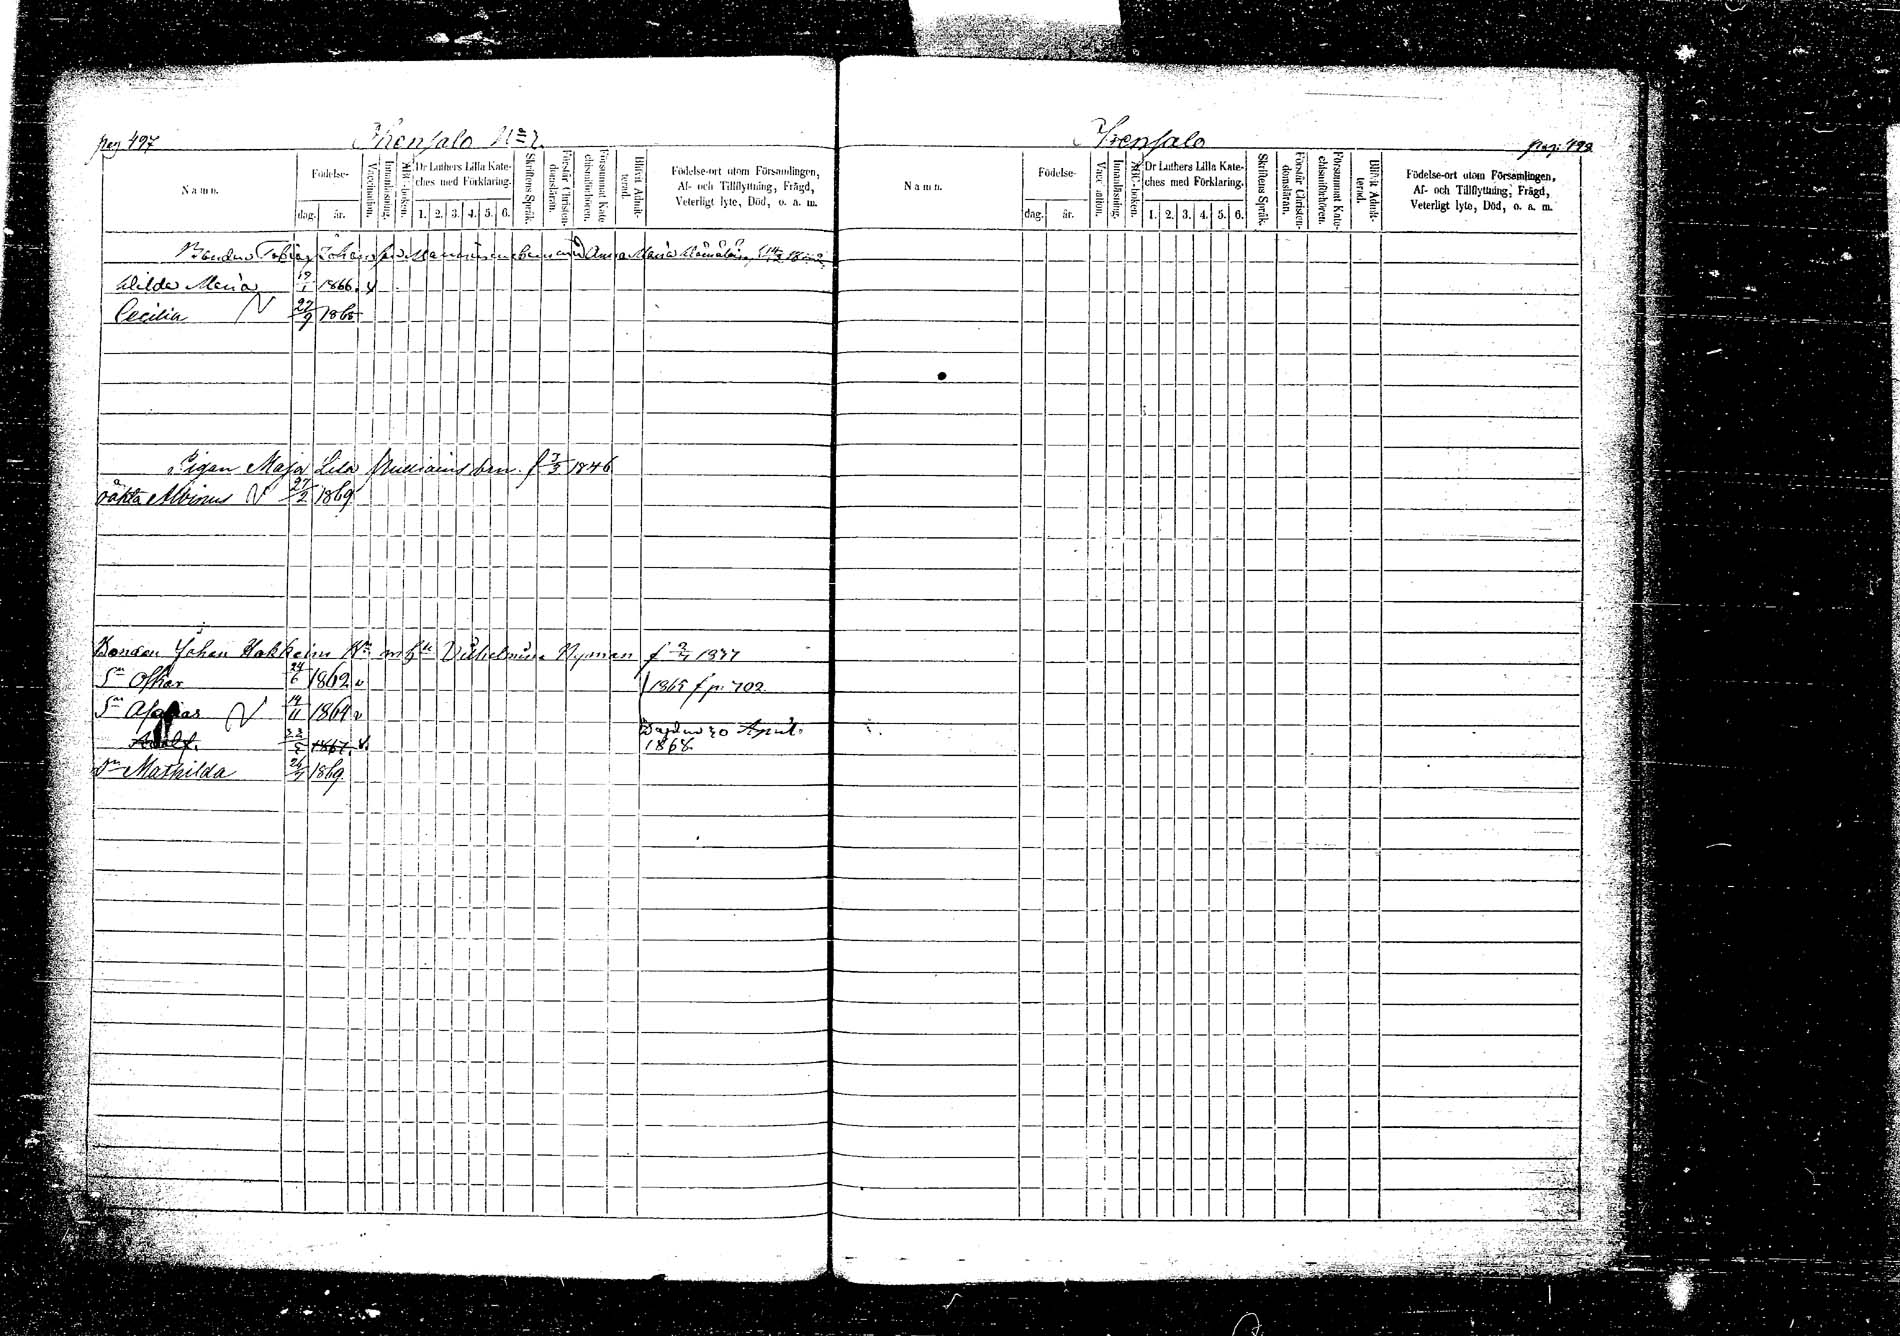 pag 497
Ihensalo No 7.
Namn.
Födelse-
dag. år.
Vaccination.
Innanläsning.
ABC-boken.
Dr Luthers Lilla Kate-
ches med Förklaring.
1. 2. 3. 4. 5. 6.
Skriftens Språk.
Förstår Christen-
domsläran.
Försummat Kate-
chismiförhören.
Blifvit Admit-
terad.
Födelse-ort utom Församlingen,
Af- och Tillflyttning, Frägd,
Veterligt lyte, Död, o. a. m.
Bonden Tobias Johansson barn Anna Maria
Hilda Maria 19/1 1866. v
Cecilia 27/9 1868
Pigan Maja Lisa barn. f 3/3 1846
oäkta Albinus 27/2 1869
Bonden Johan Hn m h Vilhelmina Nyman f 1837
Sn Oskar 24/6 1862 v 1865 f p. 702.
Sn 14/11 1864 v
Adolf. 1867. v. 20 April
1868.
Mathilda 26/7 1869.
Ihensalo
pag: 498
Namn.
Födelse-
dag. år.
Vaccination.
Innanläsning.
ABC-boken.
Dr Luthers Lilla Kate-
ches med Förklaring.
1. 2. 3. 4. 5. 6.
Skriftens Språk.
Förstår Christen-
domsläran.
Försummat Kate-
chismiförhören.
Blifvit Admit-
terad.
Födelse-ort utom Församlingen,
Af- och Tillflyttning, Frägd,
Veterligt lyte, Död, o. a. m.